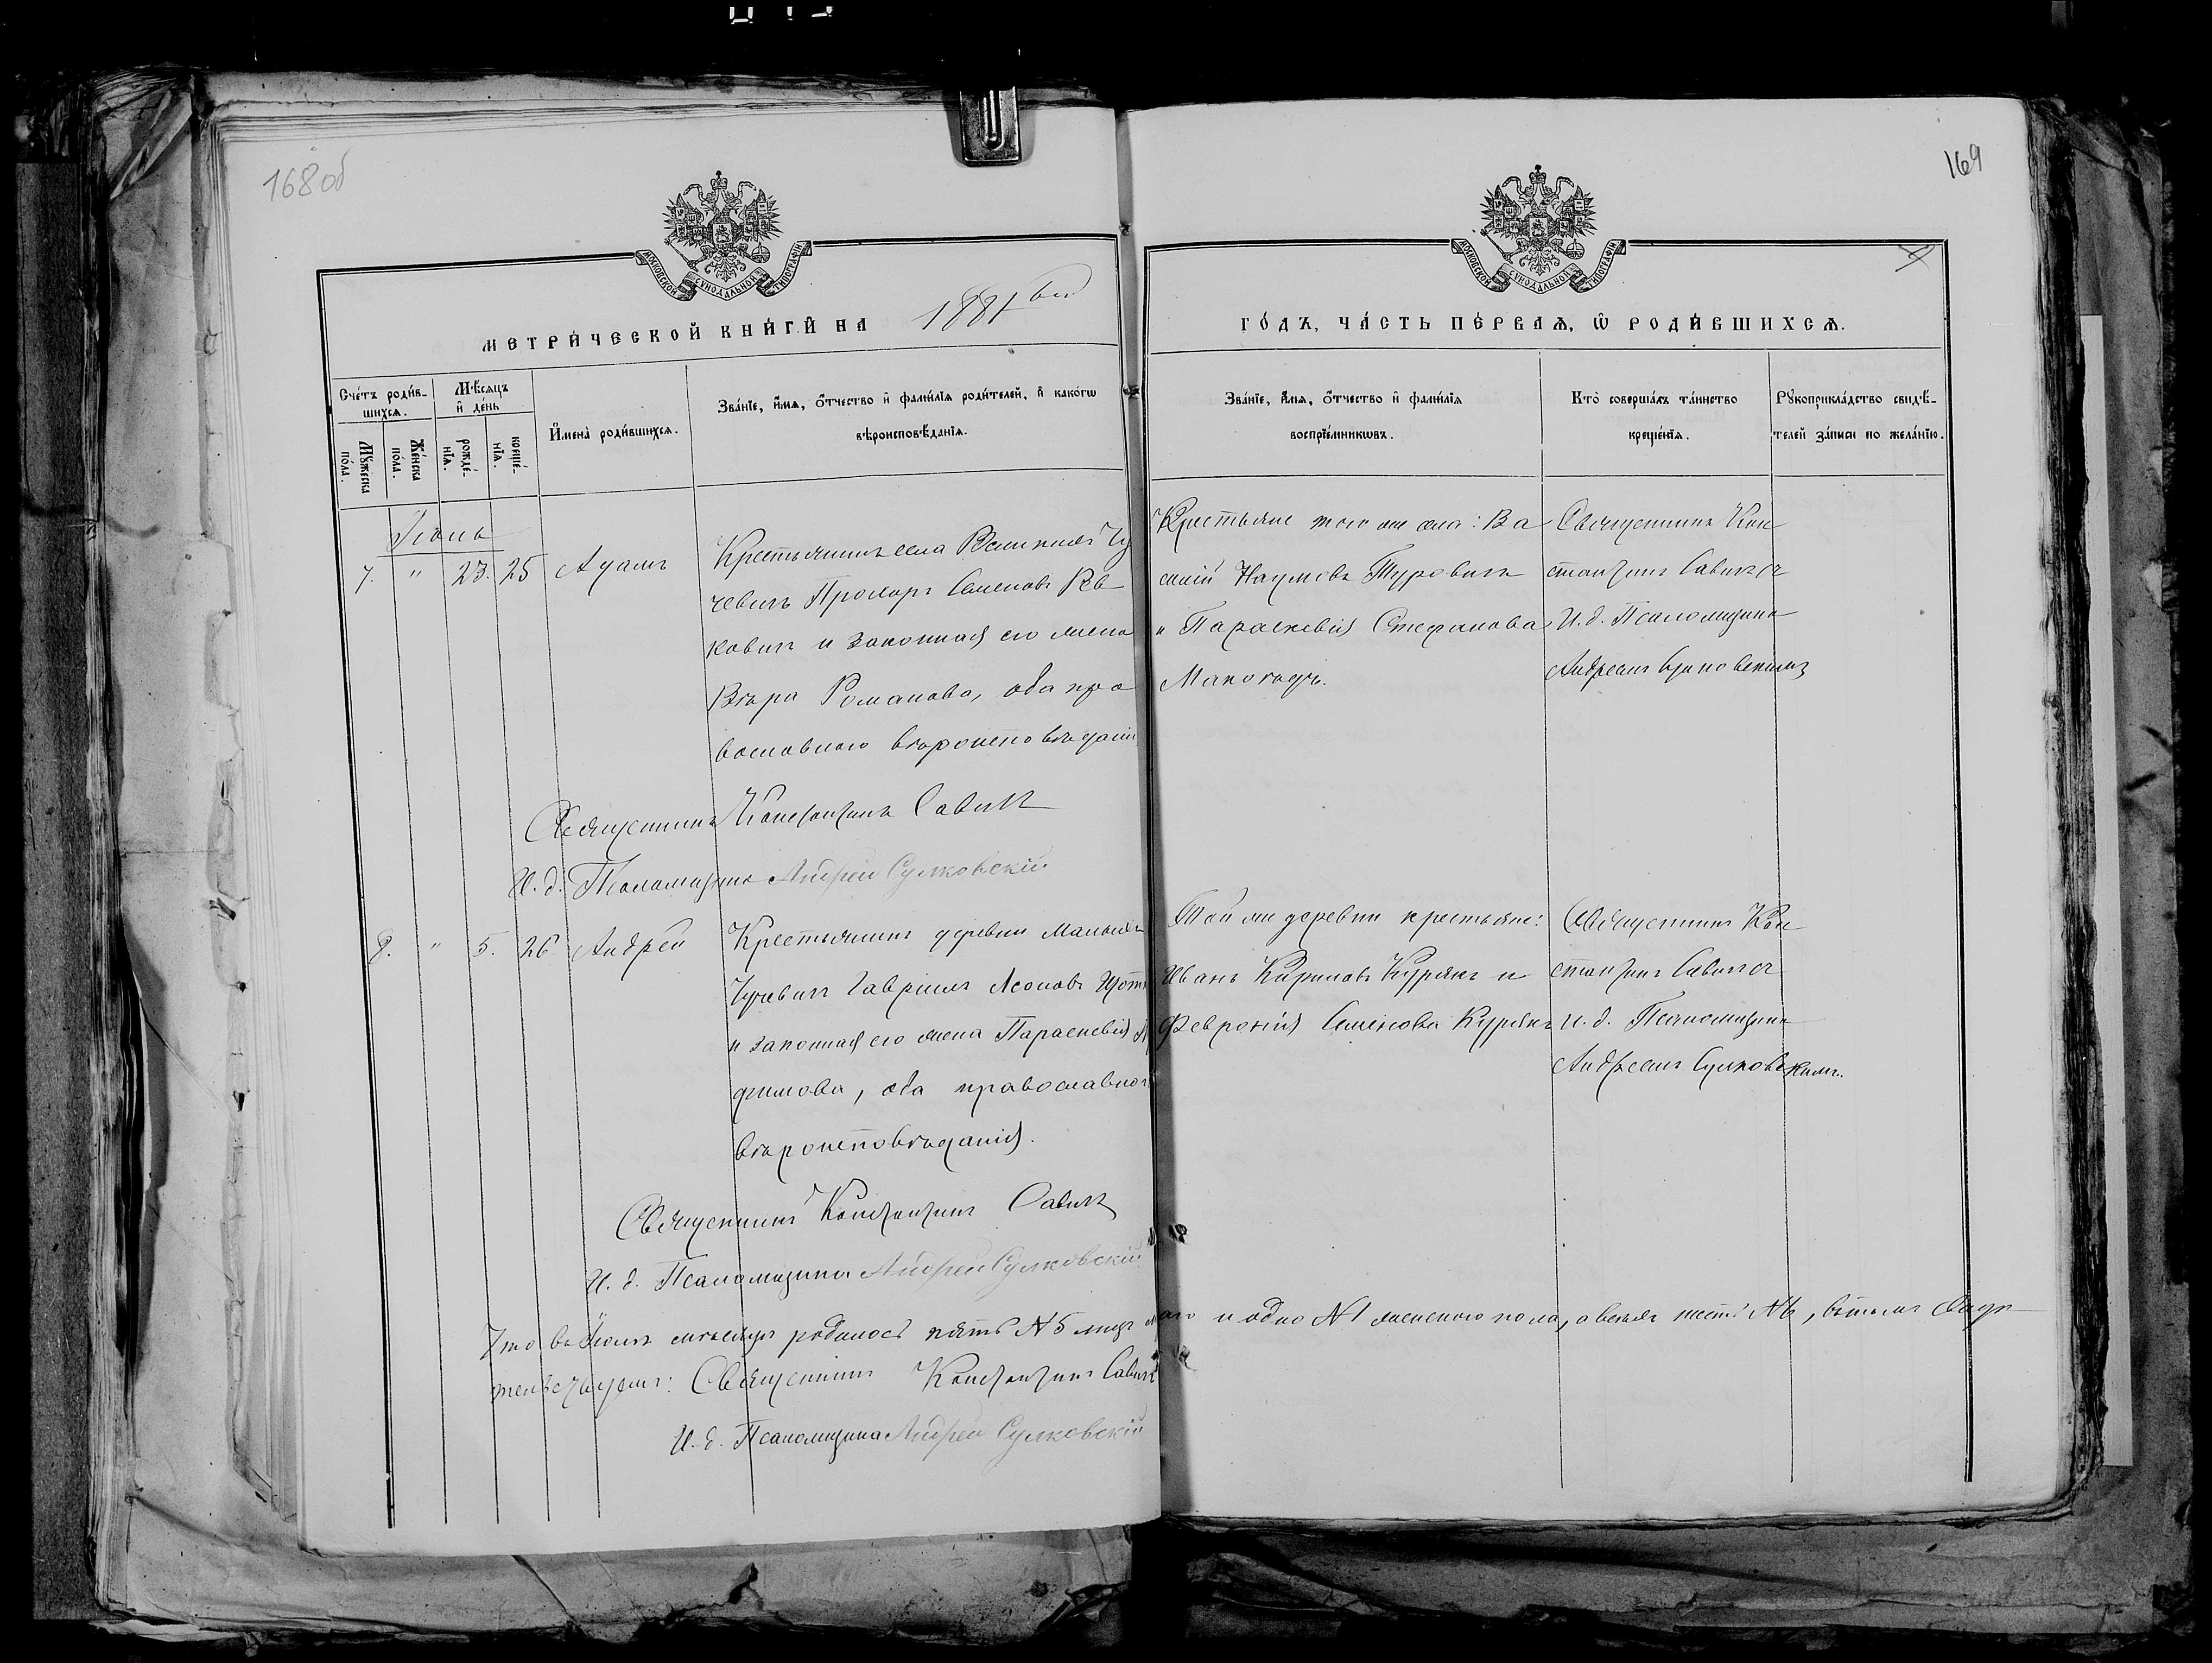 168 об
169
МОСКОВСКОЙ СѴНОДАЛЬНОЙ ТИПОГРАФІИ
МОСКОВСКОЙ СѴНОДАЛЬНОЙ ТИПОГРАФІИ
МЕТРИ́ЧЕСКОЙ КНИ́ГИ НА 1881 вый
ГО́ДЪ, ЧА́СТЬ ПЕ́РВАѦ, Ѡ РОДИ́ВШИХСѦ.
Сче́тъ роди́в-
шихсѧ.
Мѣ́сѧцъ
и҆ де́нь
Мꙋ́жеска
по́ла.
Же́нска
по́ла.
рожде́-
нїѧ.
креще́-
нїѧ.
И҆мена̀ роди́вшихсѧ.
Зва́нїе, и҆́мѧ, ѻ҆́тчество и҆ фами́лїѧ роди́телей, и҆ како́гѡ
вѣроисповѣ́данїѧ.
Зва́нїе, и҆́мѧ, ѻ҆́тчество и҆ фами́лїѧ
воспрїе́мникѡвъ.
Кто̀ соверша́лъ та́инство
креще́нїѧ.
Рꙋкоприкла́дство свидѣ́-
телей за́писи по жела́нїю.
Іюнь
7. " 23. 25 Адамъ
Крестьянинъ села Великихъ Чу
чевичъ Прохоръ Семеновъ Рев
ковичъ и законная его жена
Вѣра Романова, оба пра
вославнаго вѣроисповѣданія
Крестьяне того же села: Ва
силій Наумовъ Туровичъ
и Параскевія Стефанова
Священникъ Кон
стантинъ Савичъ съ
И. д. Псаломщика
Андреемъ Сулковскимъ
Священникъ Константинъ Савичъ
И. д. Псаломщика Андрей Сулковскій
8. " 5. 26 Андрей
Крестьянинъ деревни Малыхъ
Чучевичъ Гавріилъ Леоновъ
и законная его жена Параскевія
фимова, оба православнаго
вѣроисповѣданія.
Той же деревни крестьяне:
Иванъ Кириловъ Курякъ и
Февронія Семенова Курякъ
Священникъ Кон
стантинъ Савичъ съ
и. д. Псаломщика
Андреемъ Сулковскимъ.
Священникъ Константинъ Савичъ
И. д. Псаломщика Андрей Сулковскій
Что въ Іюнѣ мѣсяцѣ родилось пять № 5 муж аго и одно № 1 женскаго пола, а всѣхъ шесть № 6, въ томъ свидѣ
тельствуемъ: Священникъ Константинъ Савичъ
И. д. Псаломщика Андрей Сулковскій